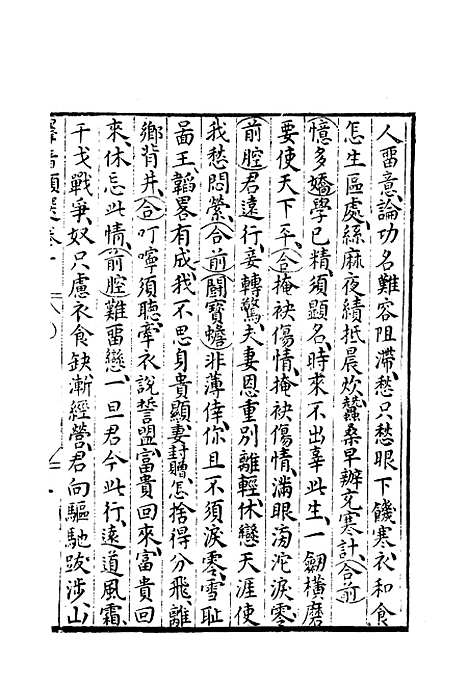 人畱意論功名難容阻滯愁只愁眼下饑寒衣和食
怎生區處絲麻夜績抵晨炊蠶桑早辦充寒計合前
憶多嬌學已精須顯名時來不出辜此生一劒橫磨
要使天下平合掩袂傷情掩袂傷情滿眼滂沱淚零
前腔君遠行妾轉驚夫妻恩重別離輕休戀天涯使
我愁悶縈合前鬭寶蟾非薄倖你且不須淚零雪耻
啚王韜畧有成我不思身貴顯妻封贈怎捨得分飛離
鄉背井合叮嚀須聽牽衣說誓盟富貴回來富貴回
來休忘此情前腔難畱戀一旦君今此行遠道風霜
干戈戰爭奴只慮衣食缺漸經營君向驅馳跋涉山